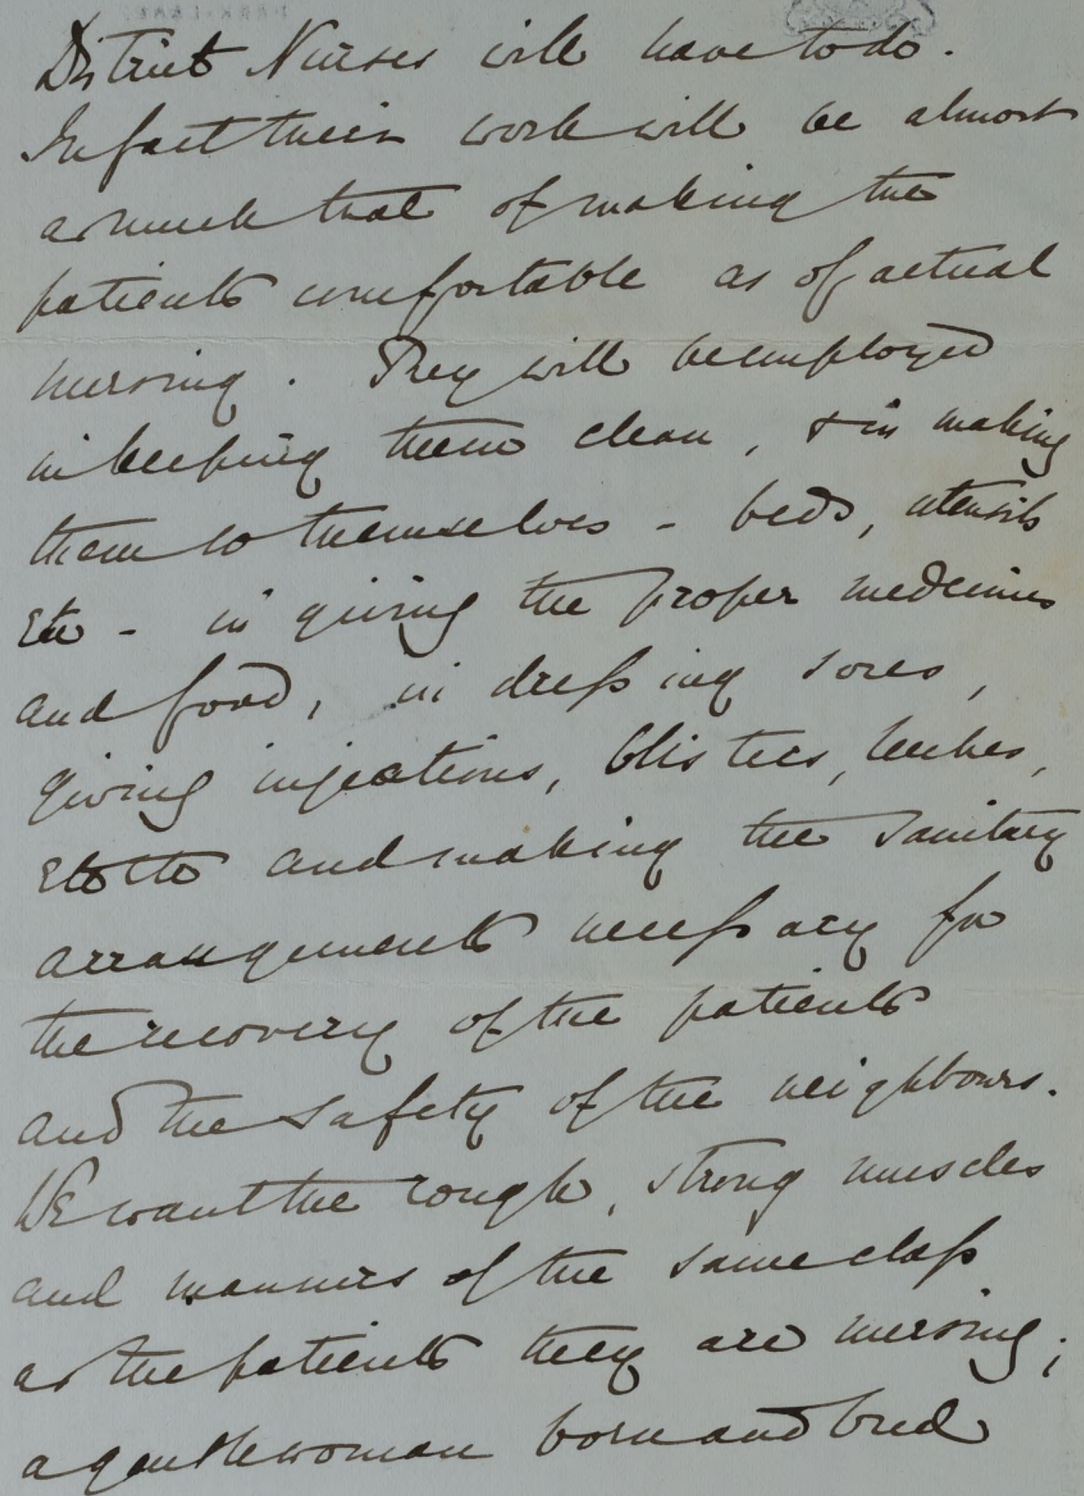 District Nurses will have to do.
In fact their work will be almost
as much that of making the
patients comfortable as of actual
nursing. They will be employed
in keeping them clean, & in making
them so themselves - beds, utensils
etc - in giving the proper medicines
and food, in dressing sores,
giving injections, blisters, leeches,
etc etc and making the sanitary
arrangements necessary for
the recovery of the patients
and the safety of the neighbours.
We want the rough, strong muscles
and manners of the same class
as the patients they are nursing;
a gentlewoman born and bred